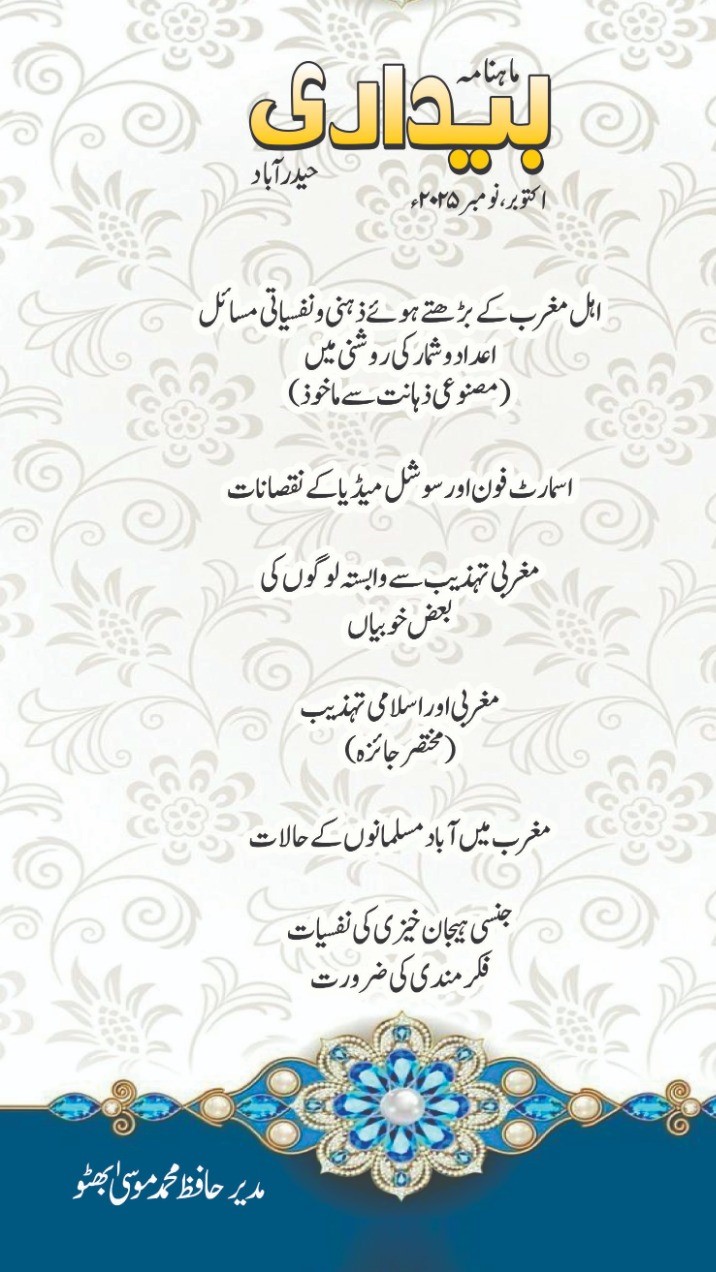 ماہنامہ
بیداری
حیدرآباد
اکتوبر، نومبر ۲۰۲۵ء
اہل مغرب کے بڑھتے ہوئے ذہنی و نفسیاتی مسائل
اعداد و شمار کی روشنی میں
(مصنوعی ذہانت سے ماخوذ)
اسمارٹ فون اور سوشل میڈیا کے نقصانات
مغربی تہذیب سے وابستہ لوگوں کی
بعض خوبیاں
مغربی اور اسلامی تہذیب
(مختصر جائزہ)
مغرب میں آباد مسلمانوں کے حالات
جنسی ہیجان خیزی کی نفسیات
فکر مندی کی ضرورت
مدیر حافظ محمد موسیٰ بھٹو